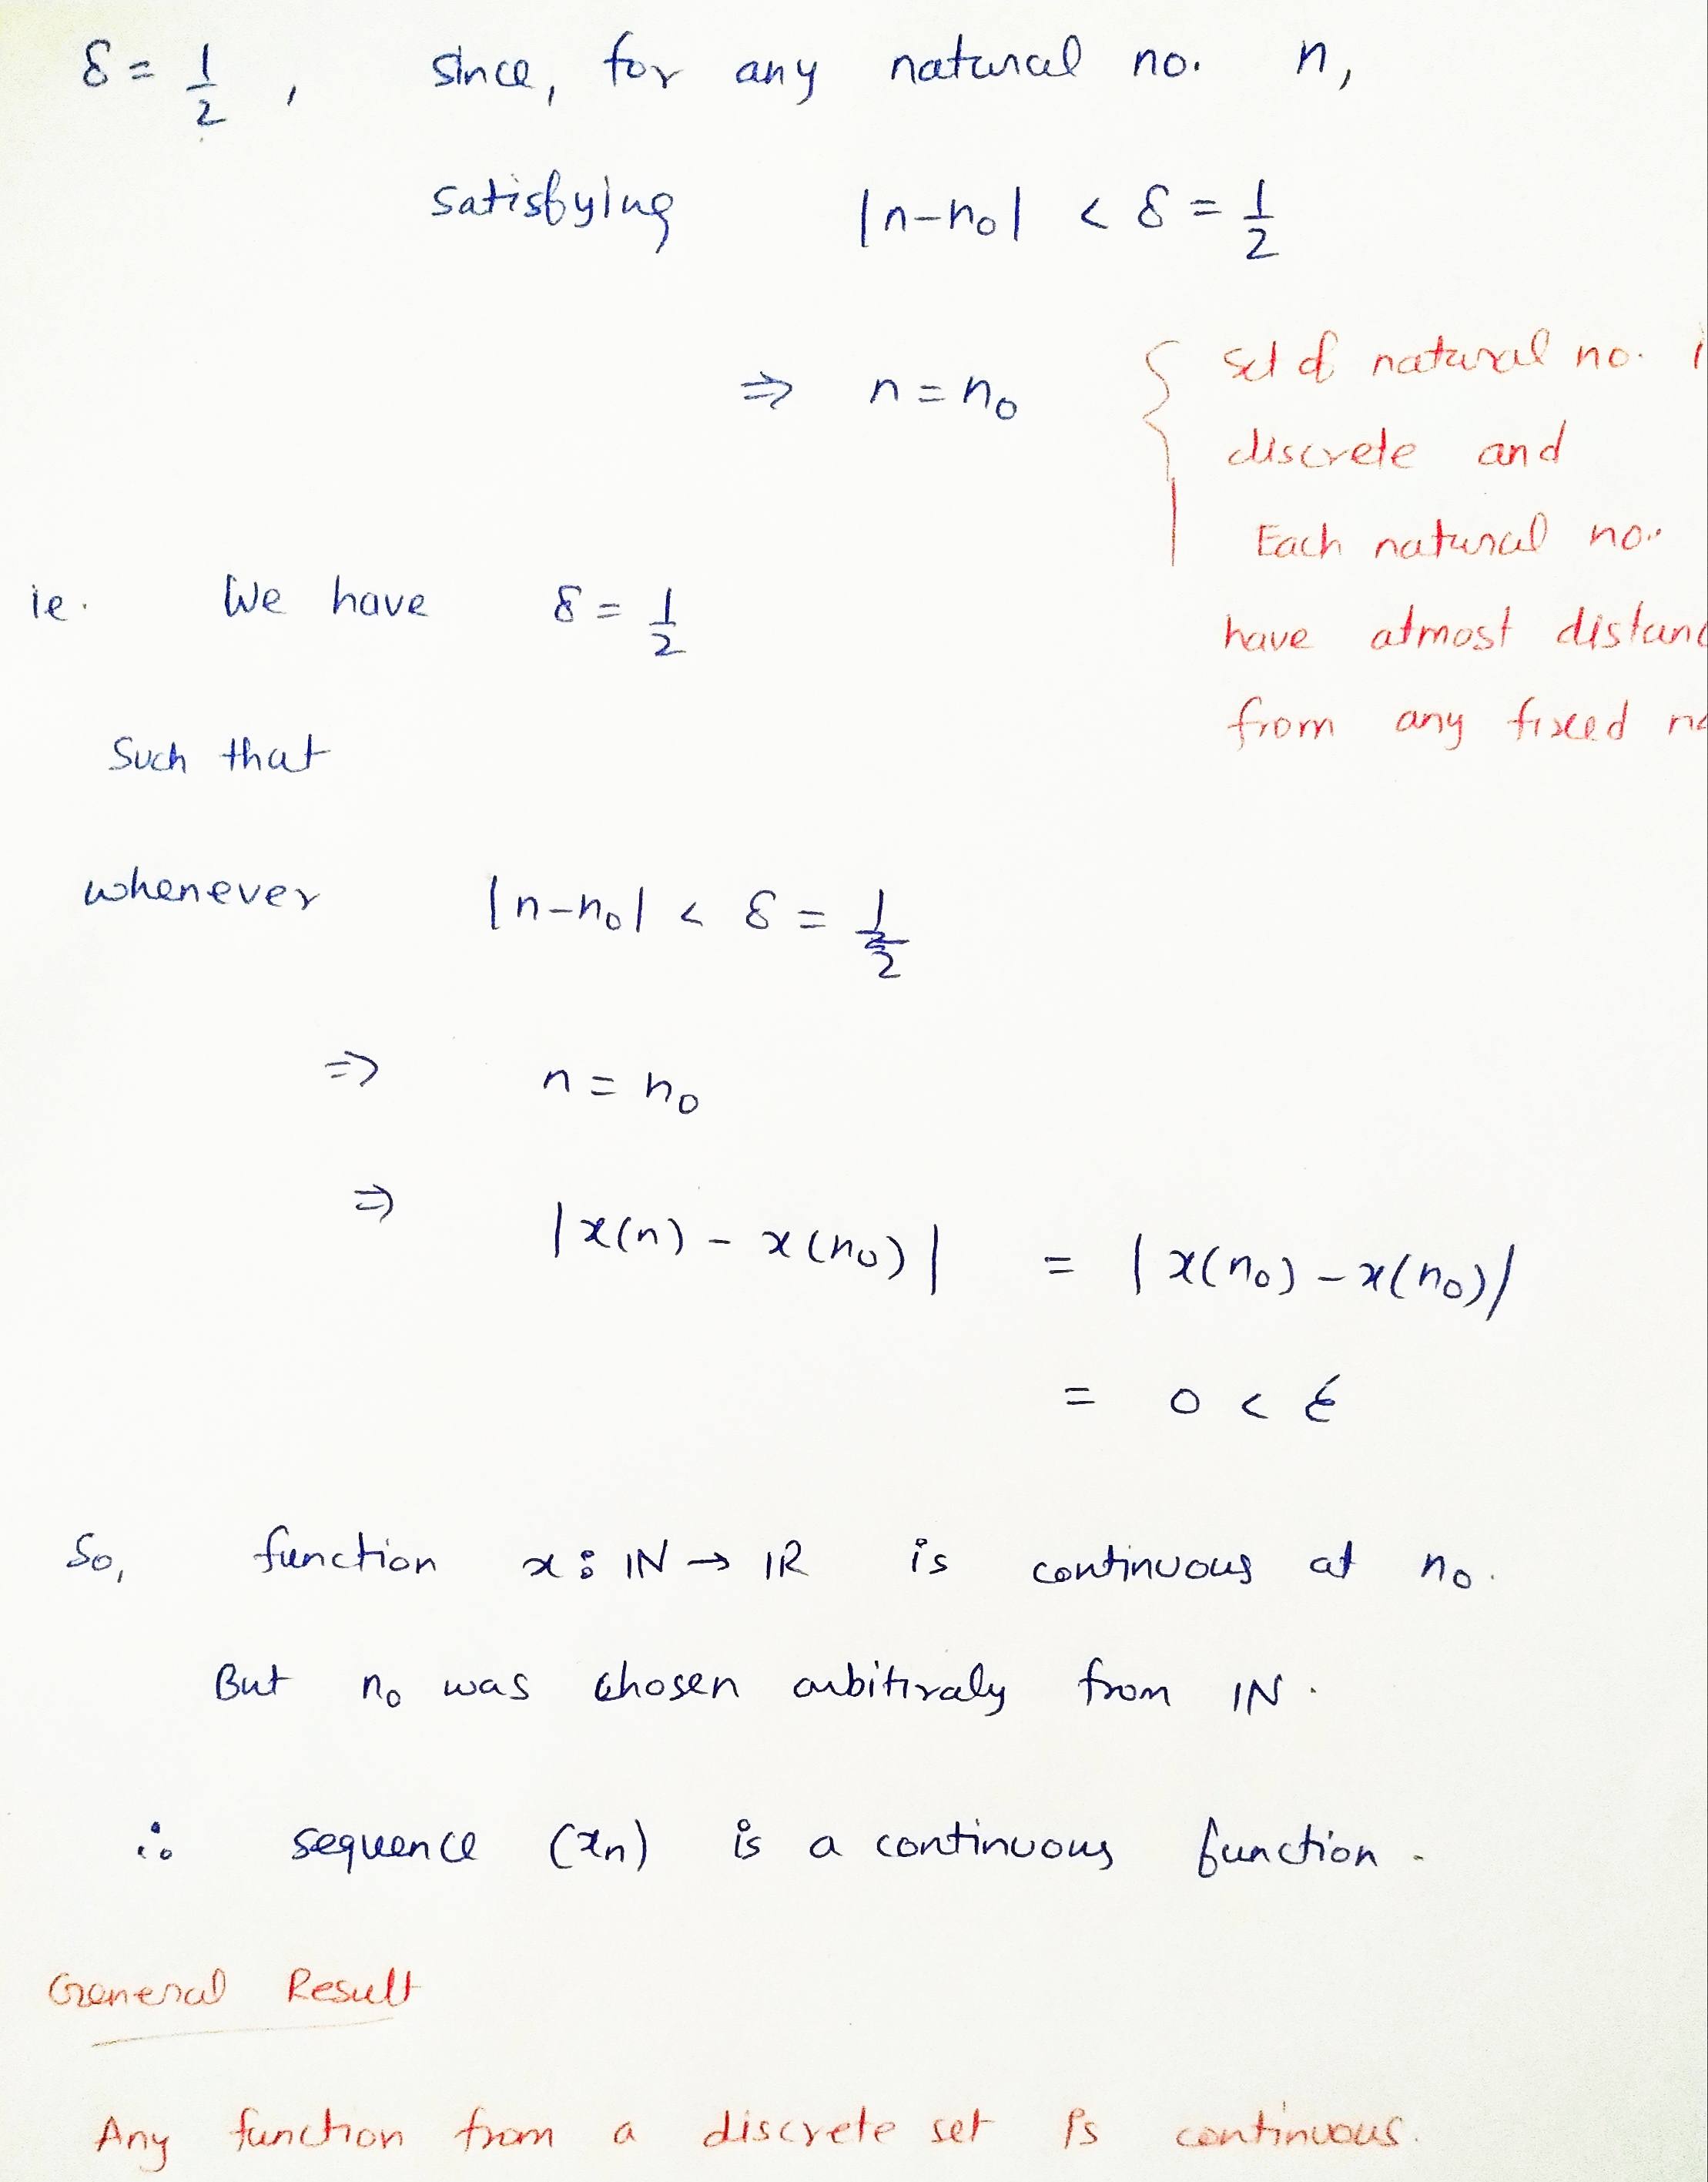 δ = 1/2 , since, for any natural no. n,
satisfying |n-n₀| < δ = 1/2
⇒ n = n₀
{ set of natural no.
discrete and
Each natural no.
have atmost
from any fixed
ie. We have δ = 1/2
Such that
whenever |n-n₀| < δ = 1/2
⇒ n = n₀
⇒ |x(n) - x(n₀)| = |x(n₀) - x(n₀)|
= 0 < ε
So, function x : ℕ → ℝ is continuous at n₀.
But n₀ was chosen arbitiraly from ℕ.
∴ sequence (xₙ) is a continuous function.
General Result
Any function from a discrete set is continuous.